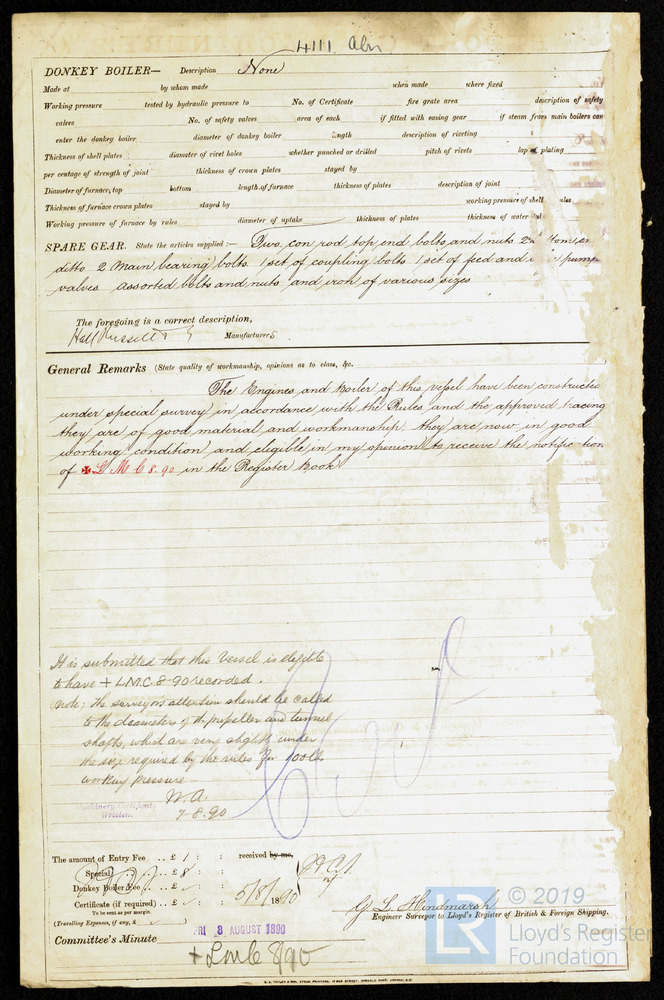 4111. Abn
DONKEY BOILER— Description None
Made at by whom made when made where fixed
Working pressure tested by hydraulic pressure to No. of Certificate fire grate area description of safety
valves No. of safety valves area of each if fitted with easing gear if steam from main boilers can
enter the donkey boiler diameter of donkey boiler length description of riveting
Thickness of shell plates diameter of rivet holes whether punched or drilled pitch of rivets lap of plating
per centage of strength of joint thickness of crown plates stayed by
Diameter of furnace, top bottom length of furnace thickness of plates description of joint
Thickness of furnace crown plates stayed by working pressure of shell
Working pressure of furnace by rules diameter of uptake thickness of plates thickness of water
SPARE GEAR. State the articles supplied:— Two, con, rod top end bolts and nuts
ditto 2 Main bearing bolts 1 set of coupling bolts 1 set of feed and pump
valves assorted bolts and nuts and iron of various sizes
The foregoing is a correct description,
Hall Russell Manufacturers
General Remarks (State quality of workmanship, opinions as to class, &c.
The Engines and Boiler of this vessel have been constructe
under special survey in accordance with the Rules and the approved tracing
they are of good material and workmanship, they are now in good
working condition and eligible in my opinion to receive the
of ✠ L M C 8.90 in the Register Book
It is submitted that this Vessel is eligible
to have + L.M.C. 8-90 recorded.
Note: the surveyors attention should be called
to the diameters of the propeller and tunnel
shafts, which are very slightly under
the size required by the rules for 100 lb
working pressure
7-8-90
Machinery Certificate
Written.
The amount of Entry Fee .. £ 1 : : received by me,
Special .. £ 8 : :
Donkey Boiler Fee .. £ : :
Certificate (if required) .. £ : : 5/8/1890
To be sent as per margin.
(Travelling Expenses, if any, £ )
G. L. Hindmarsh
Engineer Surveyor to Lloyd's Register of British & Foreign Shipping.
Committee's Minute FRI 8 AUGUST 1890
+ Lmc 8/90
LR
© 2019
Lloyd's Register
Foundation